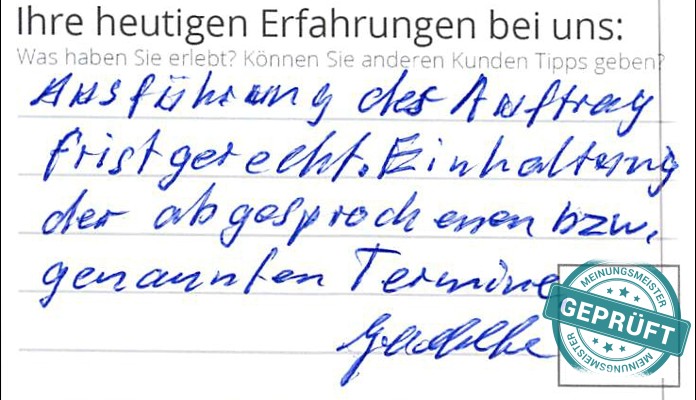 Ihre heutigen Erfahrungen bei uns:
Was haben Sie erlebt? Können Sie anderen Kunden Tipps geben?
Ausführung des Auftrag
fristgerecht. Einhaltung
der abgesprochenen bzw.
genannten Termine
MEINUNGSMEISTER
GEPRÜFT
MEINUNGSMEISTER